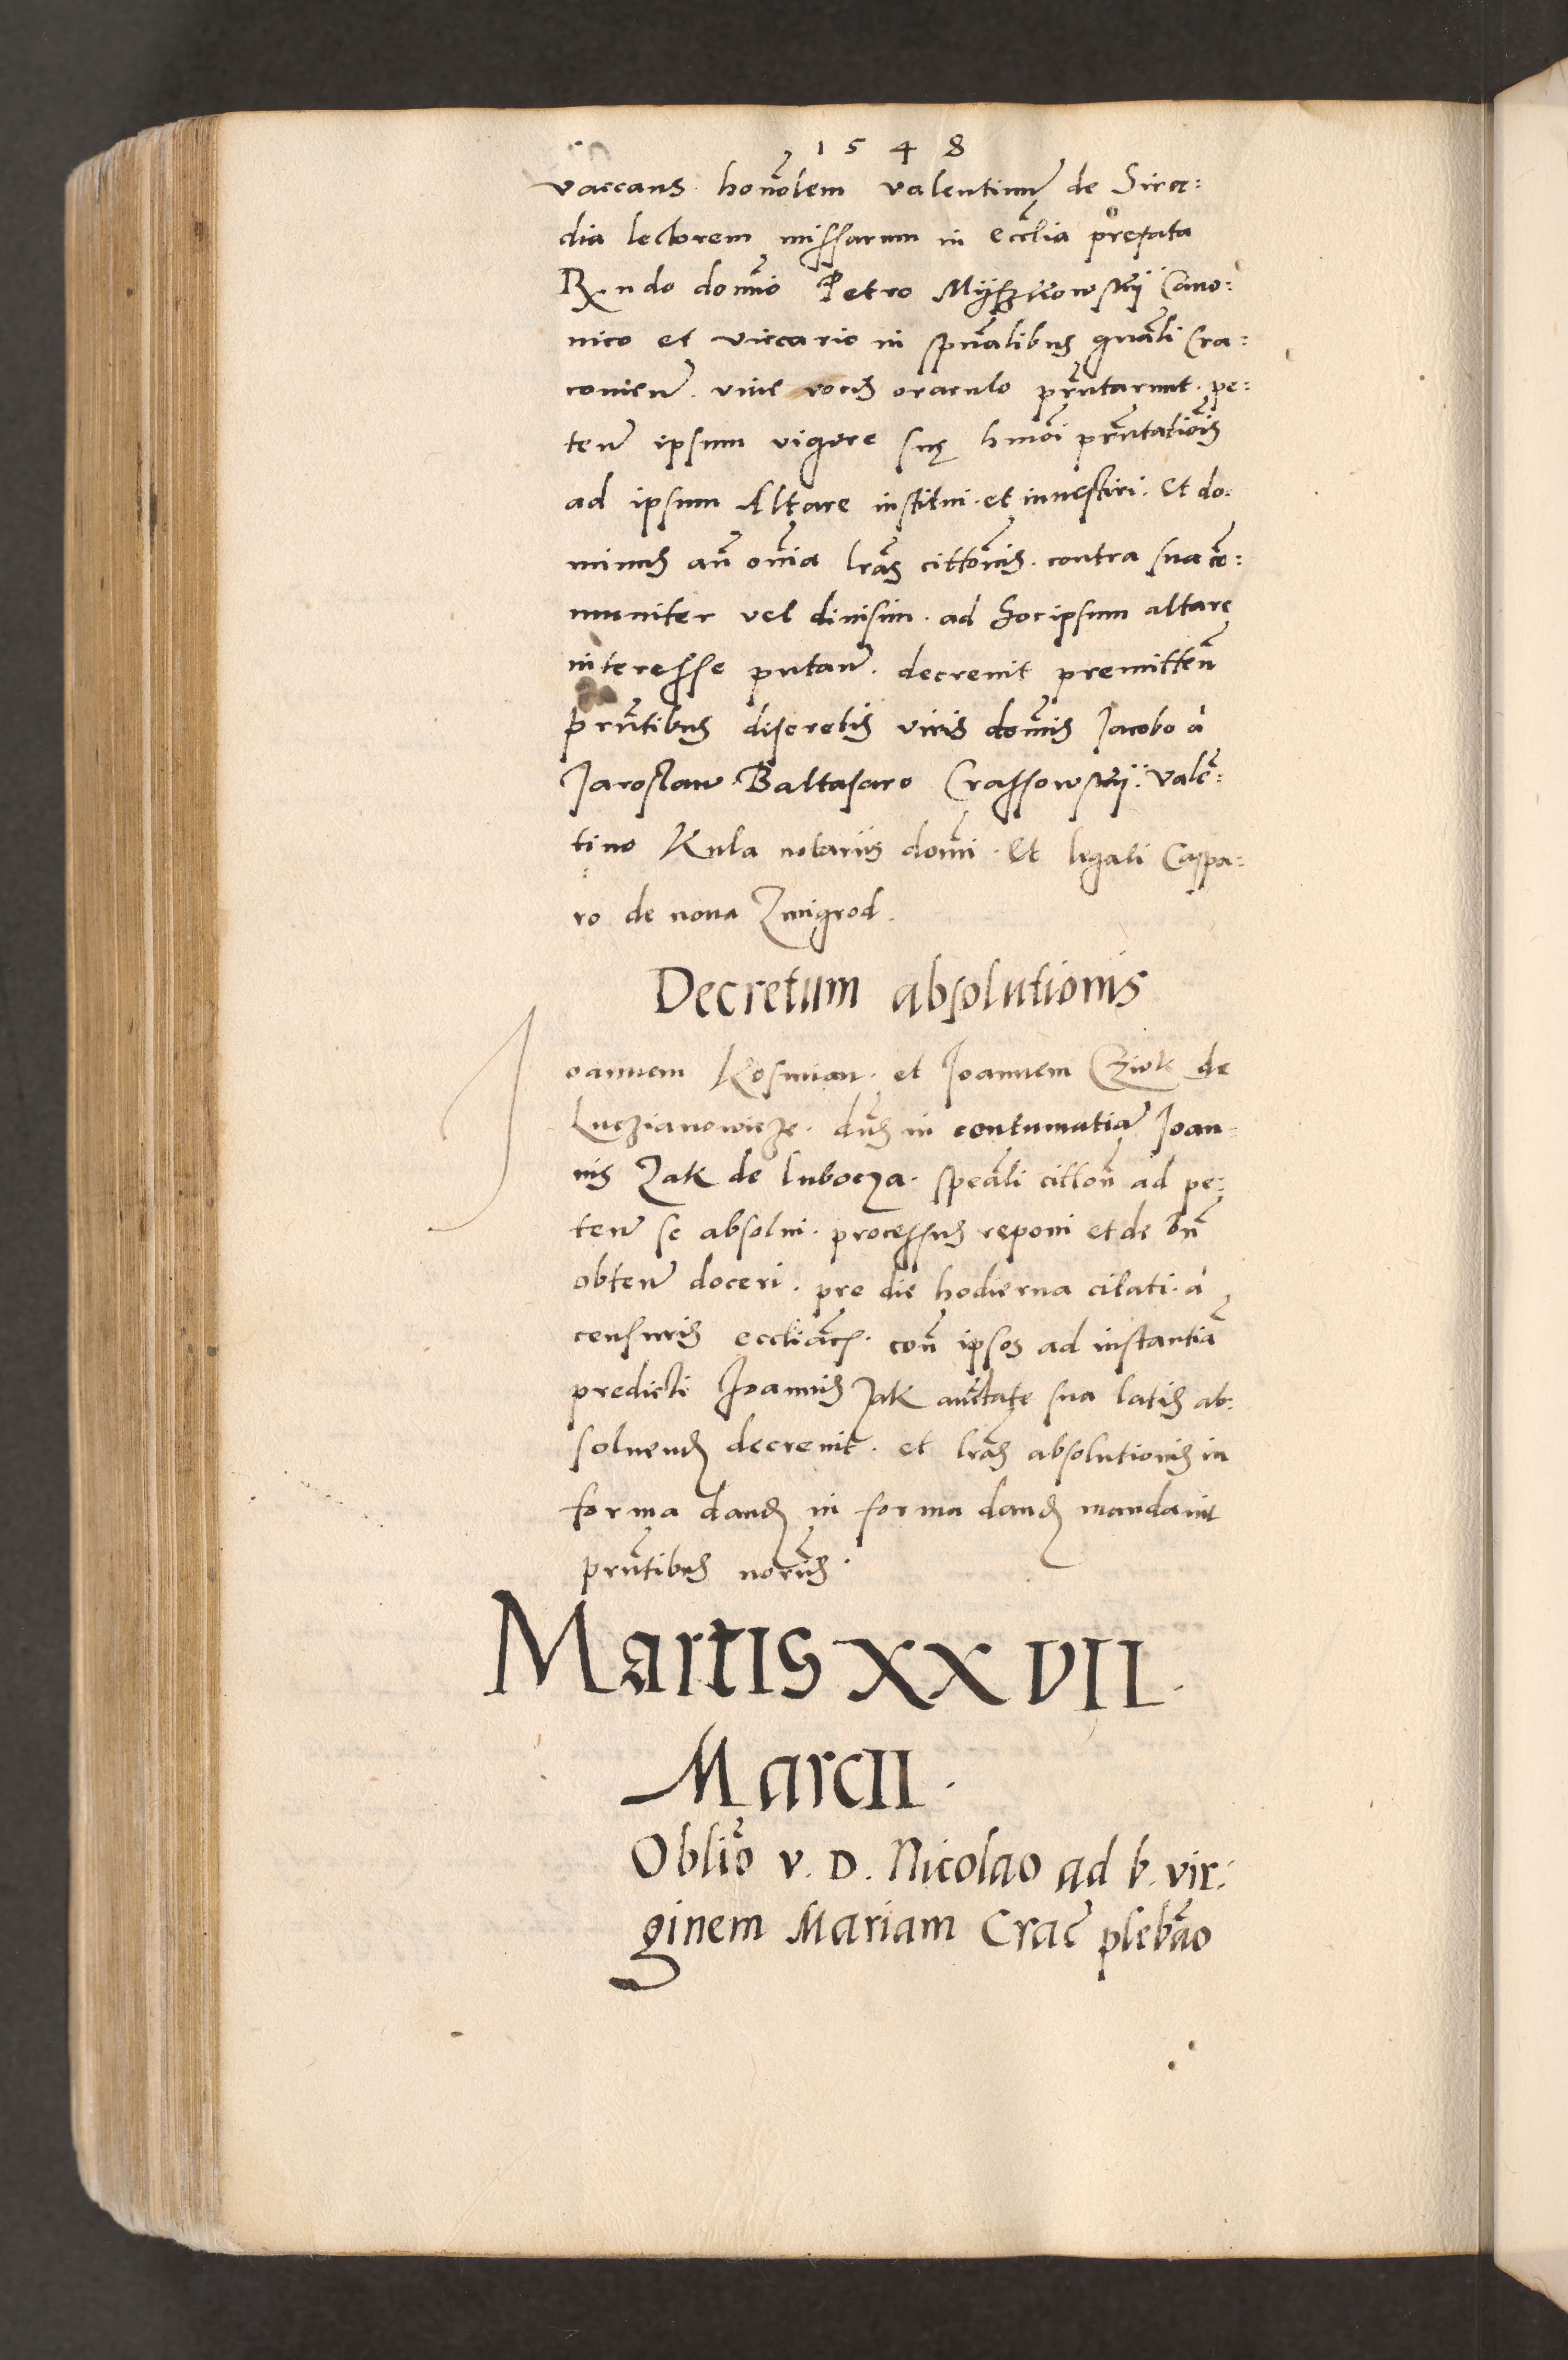 1548
vaccans. honoãlem valentinũ de Sira:
dia lectorem missarum in ecclĩa prefata
Rndo domĩo Petro Myschkowskÿ Cano:
nico et viccario in spũalibus gnãli Cra:
couieñ. viue vocis oraculo prñtarunt. pe:
teñ ipsum vigore suę hmõi prñtatiõis
ad ipsum Altare institui. et inuestiri. Et do:
minus añ omĩa lrãs cittõnis. contra sua cõ:
muniter vel diuisim. ad hoc ipsum altare
interesse putañ. decreuit premitteñ
prñtibus discretis viris domĩs Jacobo à
Jaroslaw Baltasaro Crassowskÿ. valẽ:
tino Kula notariis domĩ. Et legali Caspa:
ro de noua Zmigrod.
Decretum absolutionis
Joannem Kosmian. et Joannem Cziok de
Luczianowicze. dñs in contumatiã Joan:
nis Zak de lubocza. speãli cittoñ ad pe:
teñ se absolui. processus reponi et de bñ
obteñ doceri. pro die hodierna citati. à
censuris eccliãs. coñ ipsos ad instantiã
predicti Joannis Zak auctãte sua latis ab:
soluend decreuit. et lrãs absolutionis in
forma dand in forma dand mandauit
prñtibus norũs.
MartIS XXVII.
MarcII.
Obliõ v. D. Nicolao ad b. vir:
ginem Mariam Crac̃ plebão